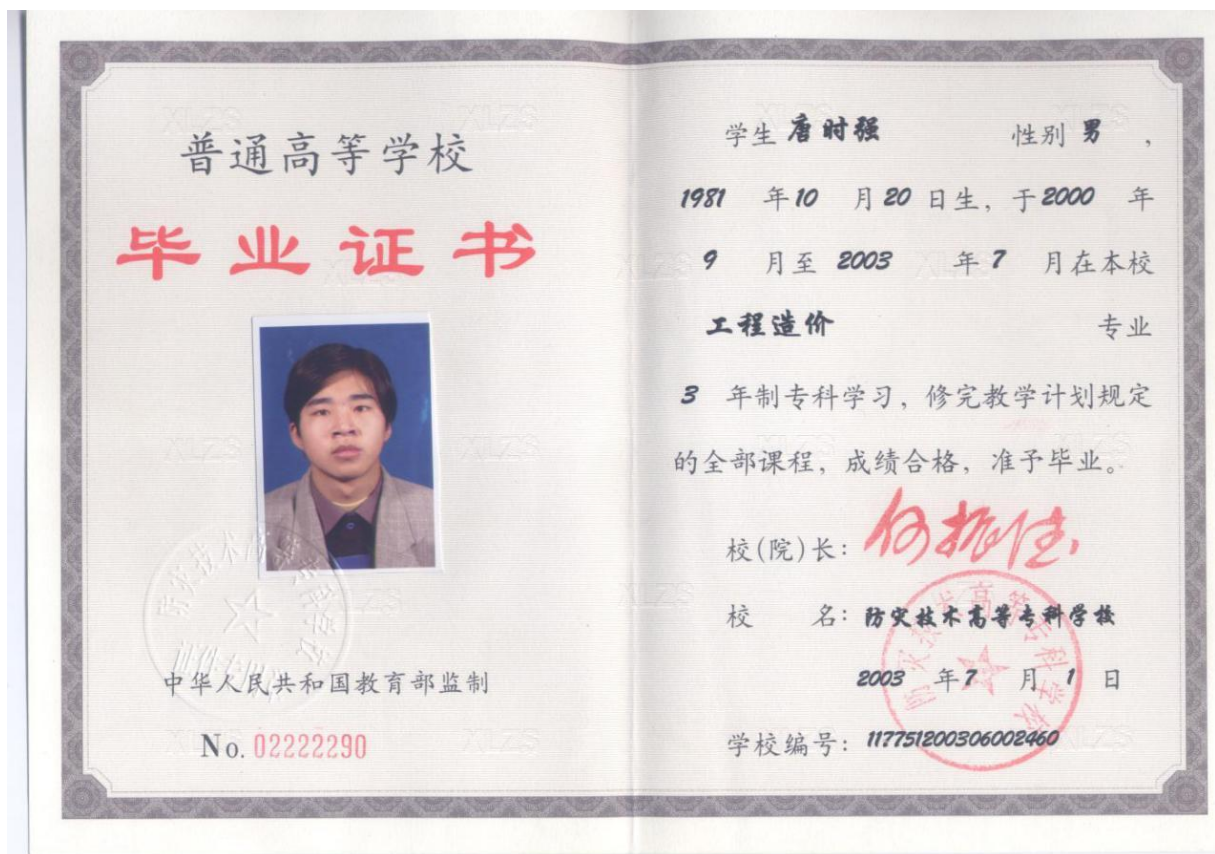 普通高等学校
毕业证书
中华人民共和国教育部监制
No. 02222290
学生 唐时强 性别 男 ,
1981 年 10 月 20 日生, 于 2000 年
9 月至 2003 年 7 月在本校
工程造价 专业
3 年制专科学习, 修完教学计划规定
的全部课程, 成绩合格, 准予毕业。
校(院)长:
校 名: 防灾技术高等专科学校
2003 年 7 月 1 日
学校编号: 117751200306002460
防灾技术高等专科学校
XLZS